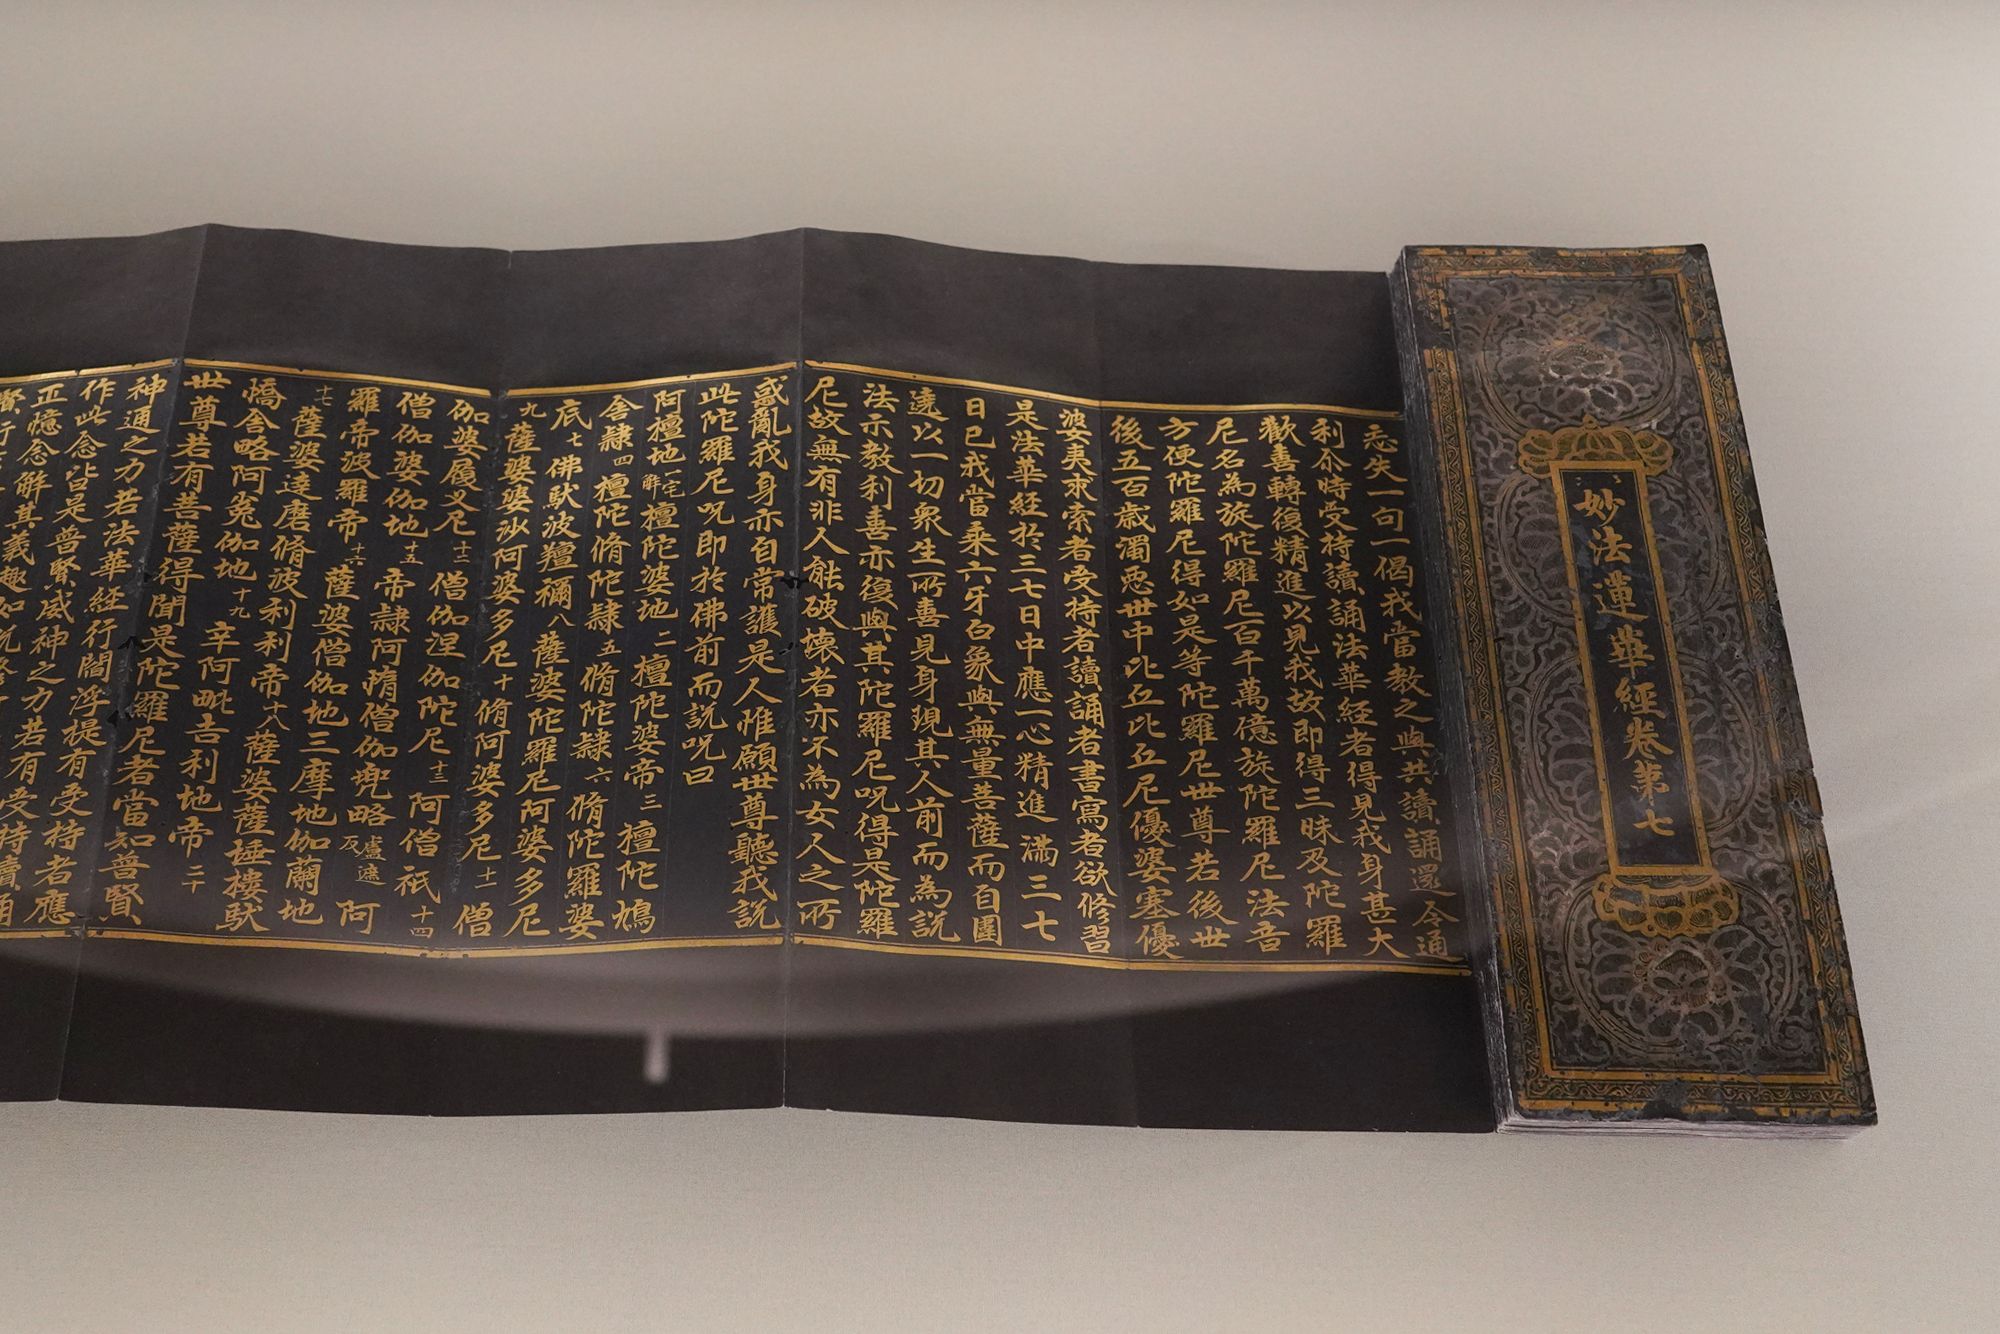 妙法蓮華經卷第七
忘失一句一偈我當教之與共讀誦還令通
利尒時受持讀誦法華經者得見我身甚大
歡喜轉復精進以見我故即得三昧及陀羅
尼名為旋陀羅尼百千萬億旋陀羅尼法音
方便陀羅尼得如是等陀羅尼世尊若後世
後五百歲濁惡世中比丘比丘尼優婆塞優
婆夷求索者受持者讀誦者書寫者欲修習
是法華經於三七日中應一心精進滿三七
日已我當乘六牙白象與無量菩薩而自圍
遶以一切眾生所喜見身現其人前而為說
法示教利喜亦復與其陀羅尼呪得是陀羅
尼故無有非人能破壞者亦不為女人之所
惑亂我身亦自常護是人惟願世尊聽我說
此陀羅尼呪即於佛前而說呪曰
阿檀地一宅解檀陀婆地二檀陀婆帝三檀陀鳩
舍隸四檀陀脩陀隸五脩陀隸六脩陀羅婆
底七佛䭾波羶禰八薩婆陀羅尼阿婆多尼
九薩婆婆沙阿婆多尼十脩阿婆多尼十一僧
伽婆履叉尼十二僧伽涅伽陀尼十三阿僧祇十四
僧伽婆伽地十五帝隸阿惰僧伽兜略盧遮反阿
羅帝波羅帝十六薩婆僧伽地三摩地伽蘭地
十七薩婆達磨脩波利利帝十八薩婆薩埵樓䭾
憍舍略阿㝹伽地十九辛阿毗吉利地帝二十
世尊若有菩薩得聞是陀羅尼者當知普賢
神通之力若法華經行閻浮提有受持者應
作此念皆是普賢威神之力若有受持讀誦
正憶念解其義趣如說
賢行